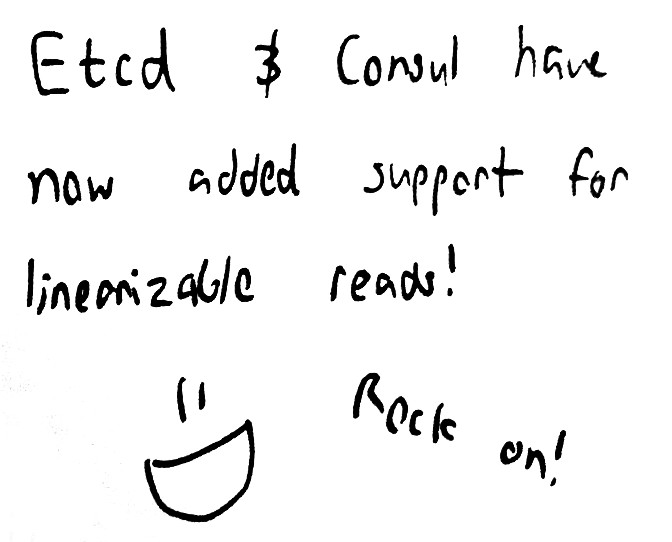 Etcd & Consul have
now added support for
linearizable reads!
Rock on!